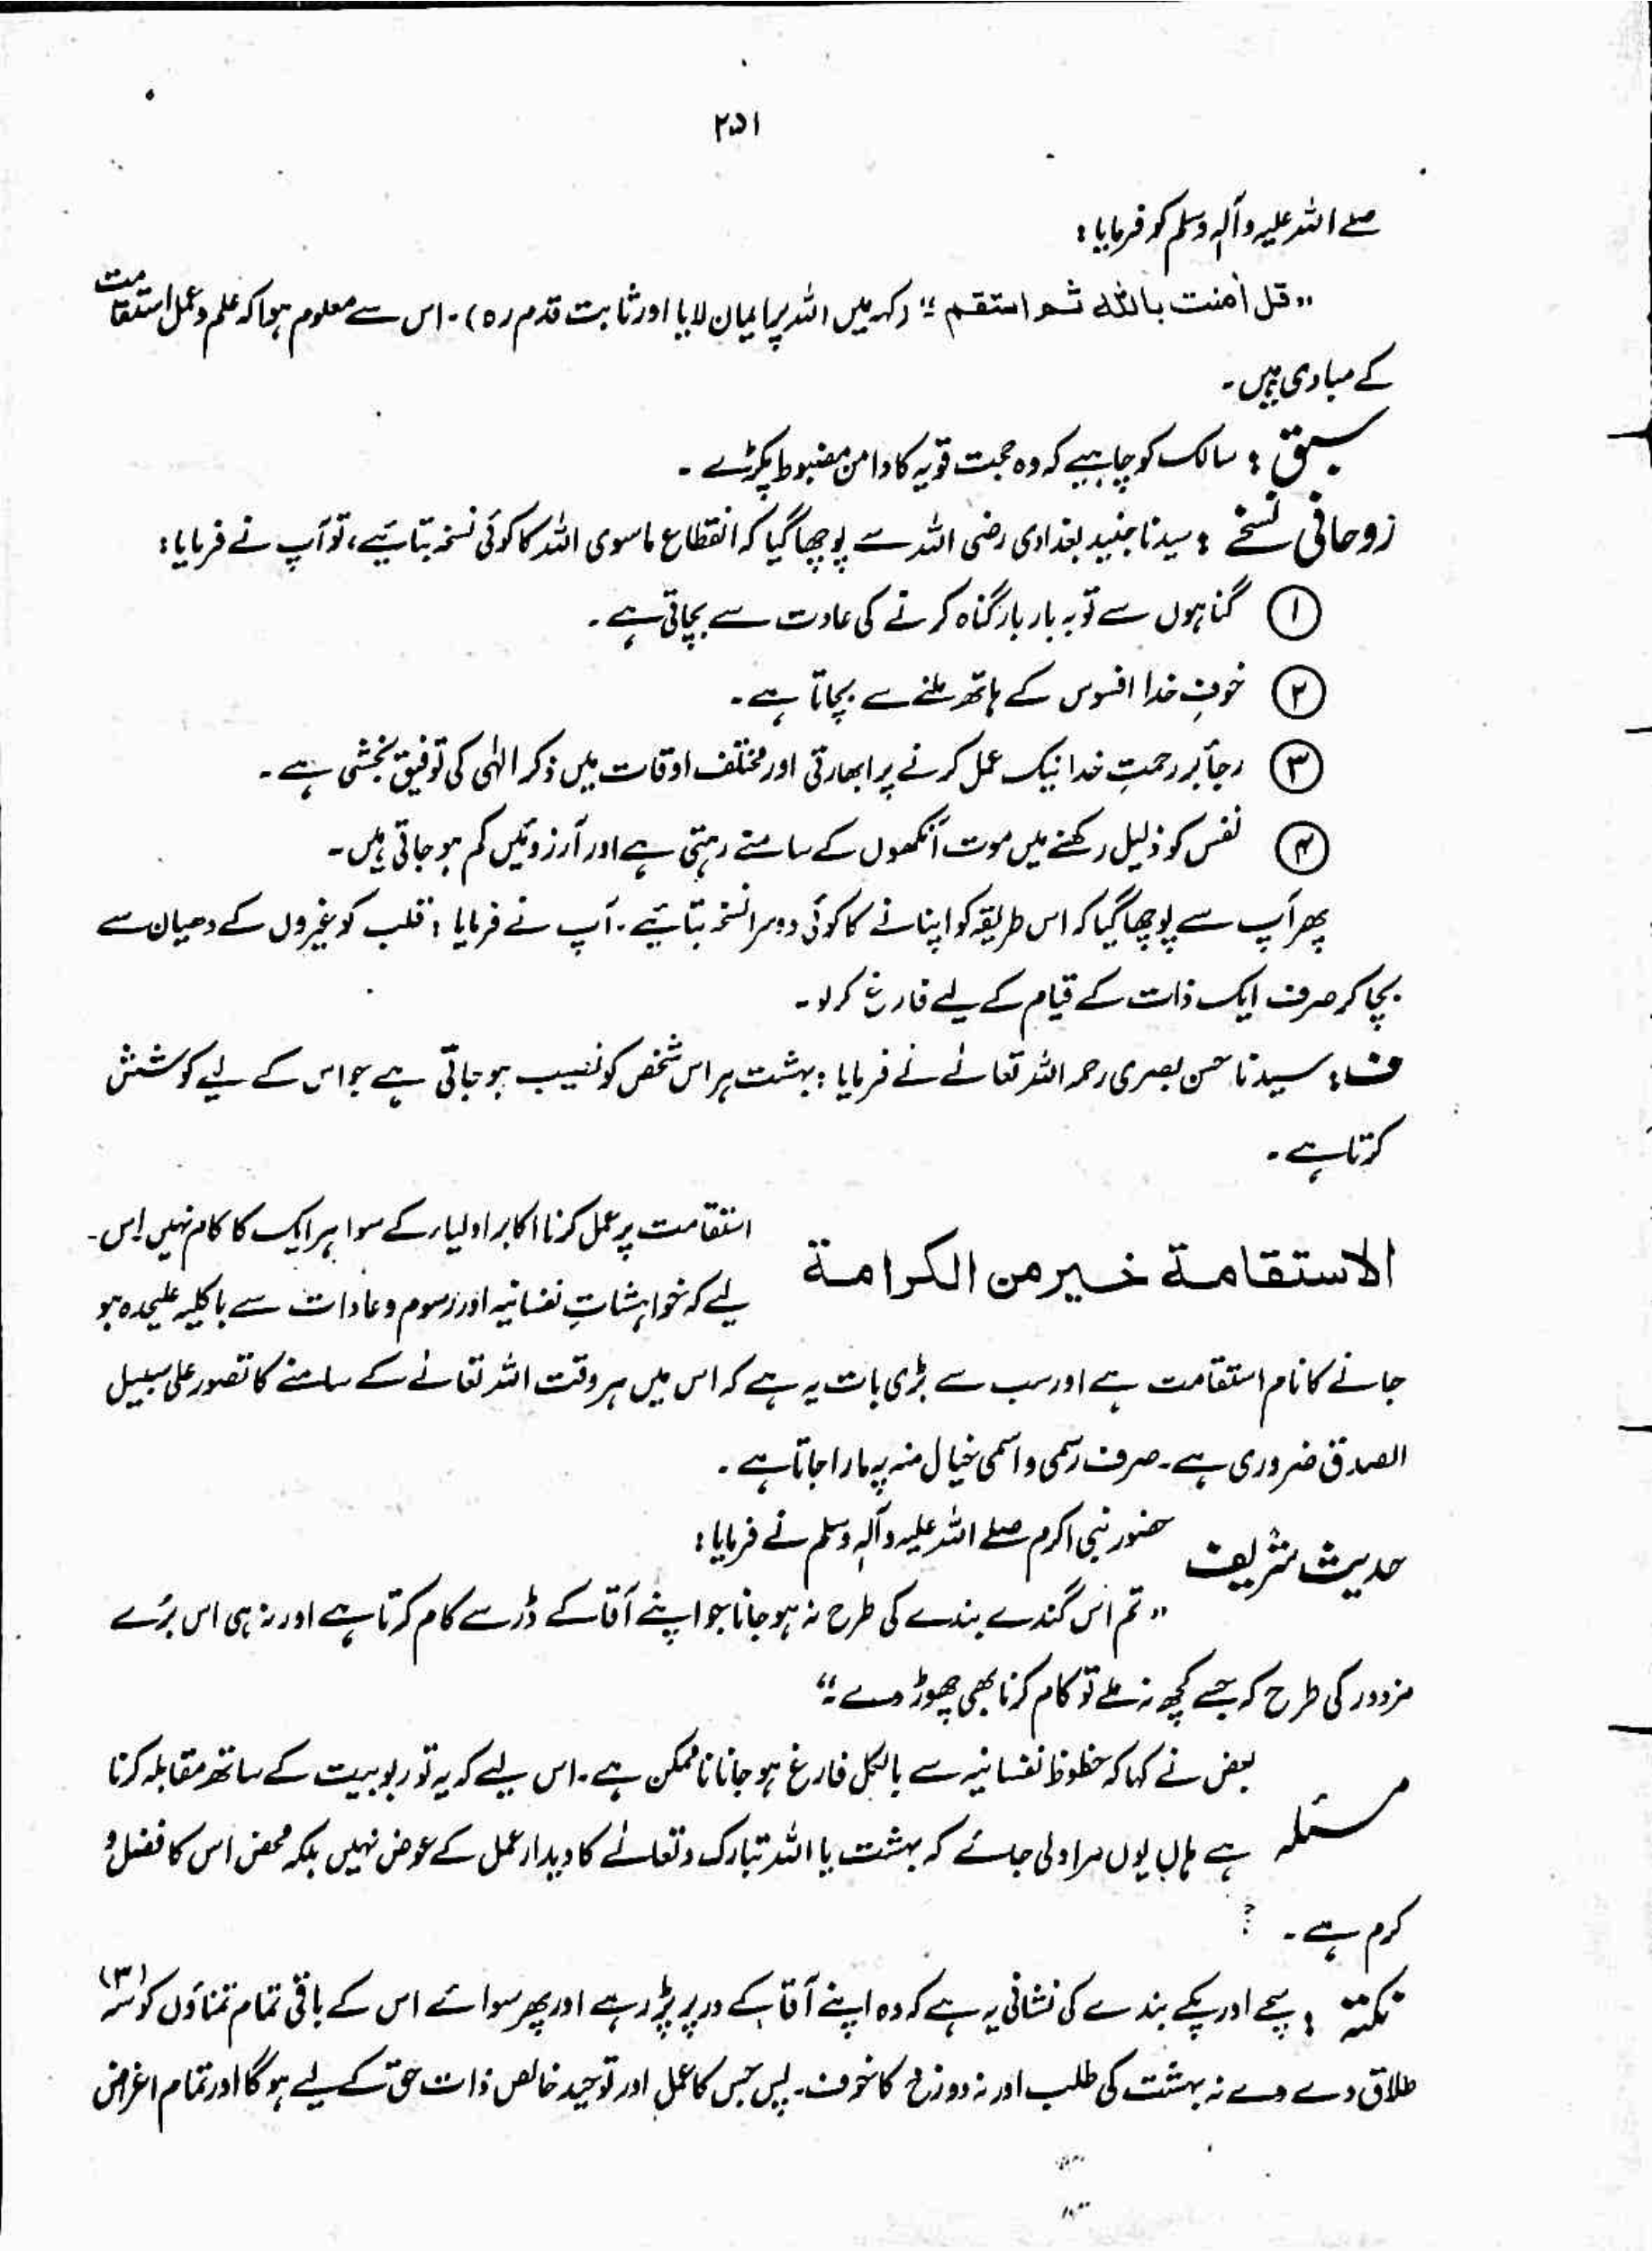 ۲۵۱
صلے اللہ علیہ وآلہ وسلم کو فرمایا :
"قل اٰمنت باللہ ثم استقم" (کہہ میں اللہ پر ایمان لایا اور ثابت قدم رہ)۔ اس سے معلوم ہوا کہ علم و عمل استقامت
کے مبادی ہیں۔
سبق : سالک کو چاہیے کہ وہ حجت قویہ کا دامن مضبوط پکڑے۔
روحانی نسخے : سیدنا جنید بغدادی رضی اللہ سے پوچھا گیا کہ انقطاع ماسوی اللہ کا کوئی نسخہ بتائیے، تو آپ نے فرمایا :
① گناہوں سے توبہ بار بار گناہ کرنے کی عادت سے بچاتی ہے۔
② خوفِ خدا افسوس کے ہاتھ ملنے سے بچاتا ہے۔
③ رجأ بر رحمتِ خدا نیک عمل کرنے پر ابھارتی اور مختلف اوقات میں ذکر الٰہی کی توفیق بخشی ہے۔
④ نفس کو ذلیل رکھنے میں موت آنکھوں کے سامنے رہتی ہے اور آرزوئیں کم ہو جاتی ہیں۔
پھر آپ سے پوچھا گیا کہ اس طریقہ کو اپنانے کا کوئی دوسرا نسخہ بتائیے۔ آپ نے فرمایا : قلب کو غیروں کے دھیان سے
بچا کر صرف ایک ذات کے قیام کے لیے فارغ کر لو۔
ف : سیدنا حسن بصری رحمہ اللہ تعالےٰ نے فرمایا : بہشت ہر اس شخص کو نصیب ہو جاتی ہے جو اس کے لیے کوشش
کرتا ہے۔
الاستقامة خیر من الکرامة
استقامت پر عمل کرنا اکابر اولیاء کے سوا ہر ایک کا کام نہیں۔ اس
لیے کہ خواہشاتِ نفسانیہ اور رسوم و عادات سے باکلیہ علیحدہ ہو
جانے کا نام استقامت ہے اور سب سے بڑی بات یہ ہے کہ اس میں ہر وقت اللہ تعالےٰ کے سامنے کا تصور علی سبیل
الصدق ضروری ہے۔ صرف رسمی و اسمی خیال منہ پہ مارا جاتا ہے۔
حدیث شریف
حضور نبی اکرم صلے اللہ علیہ وآلہ وسلم نے فرمایا :
"تم اس گندے بندے کی طرح نہ ہو جانا جو اپنے آقا کے ڈر سے کام کرتا ہے اور نہ ہی اس بُرے
مزدور کی طرح کہ جسے کچھ نہ ملے تو کام کرنا بھی چھوڑ دے۔"
مسئلہ
بعض نے کہا کہ حظوظ نفسانیہ سے بالکل فارغ ہو جانا ناممکن ہے۔ اس لیے کہ یہ تو ربوبیت کے ساتھ مقابلہ کرنا
ہے ہاں یوں مراد لی جائے کہ بہشت یا اللہ تبارک و تعالےٰ کا دیدار عمل کے عوض نہیں بلکہ محض اس کا فضل و
کرم ہے۔
نکتہ : سچے اور پکے بندے کی نشانی یہ ہے کہ وہ اپنے آقا کے در پر پڑ رہے اور پھر سوائے اس کے باقی تمام تمناؤں کو سہ (۳)
طلاق دے دے نہ بہشت کی طلب اور نہ دوزخ کا خوف۔ پس جس کا عمل اور توحید خالص ذات حق کے لیے ہو گا اور تمام اغراض